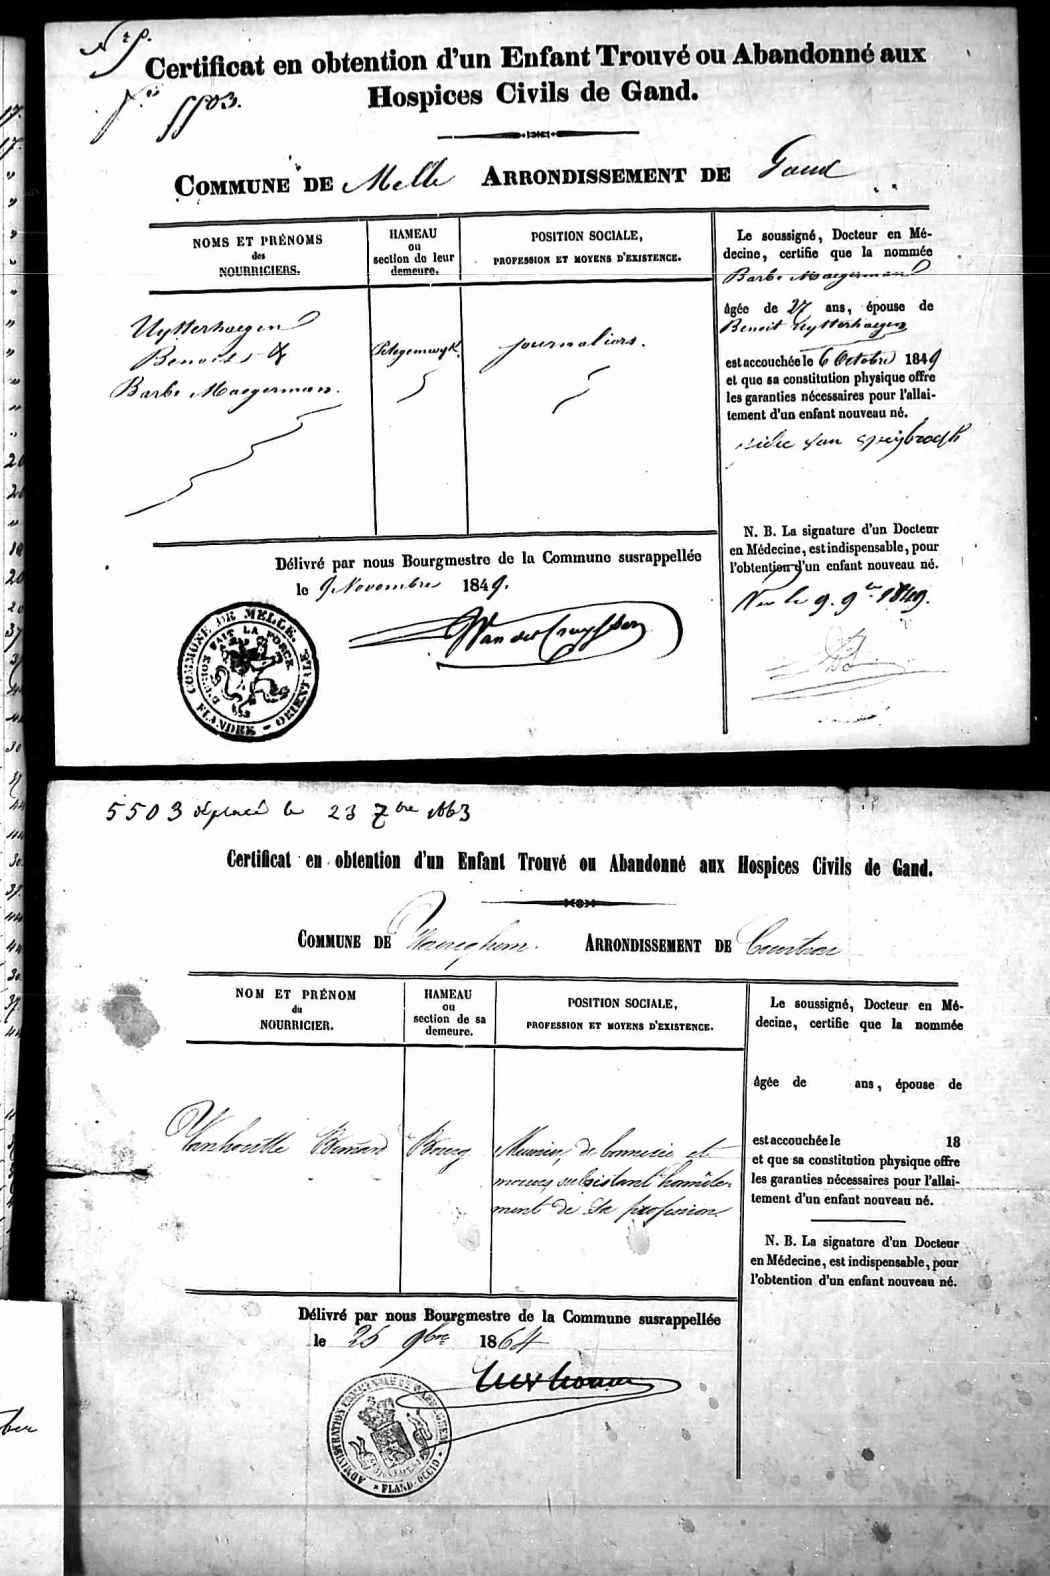 Certificat en obtention d'un Enfant Trouvé ou Abandonné aux
Hospices Civils de Gand.
5503.
COMMUNE DE Melle ARRONDISSEMENT DE Gand
NOMS ET PRÉNOMS
des
NOURRICIERS.
HAMEAU
ou
section de leur
demeure.
POSITION SOCIALE,
PROFESSION ET MOYENS D'EXISTENCE.
Uytterhaegen
Benoit &
Barbe Maegerman.
journaliers.
Le soussigné, Docteur en Mé-
decine, certifie que la nommée
Barbe Maegerman
âgée de 27 ans, épouse de
Benoit Uytterhaegen
est accouchée le 6 Octobre 1849
et que sa constitution physique offre
les garanties nécessaires pour l'allai-
tement d'un enfant nouveau né.
N. B. La signature d'un Docteur
en Médecine, est indispensable, pour
l'obtention d'un enfant nouveau né.
Vu le 9. 9bre 1849.
Délivré par nous Bourgmestre de la Commune susrappellée
le 9 Novembre 1849.
COMMUNE DE MELLE.
FLANDRE - ORIENTALE
L'UNION FAIT LA FORCE
5503 déplacé le 23 7bre 1863
Certificat en obtention d'un Enfant Trouvé ou Abandonné aux Hospices Civils de Gand.
COMMUNE DE ARRONDISSEMENT DE Courtrai
NOM ET PRÉNOM
du
NOURRICIER.
HAMEAU
ou
section de sa
demeure.
POSITION SOCIALE,
PROFESSION ET MOYENS D'EXISTENCE.
Vanhoutte Bernard
Bourg
Meunier, de bonne vie et
moeurs, subsistant honnête-
ment de sa profession.
Le soussigné, Docteur en Mé-
decine, certifie que la nommée
âgée de ans, épouse de
est accouchée le 18
et que sa constitution physique offre
les garanties nécessaires pour l'allai-
tement d'un enfant nouveau né.
N. B. La signature d'un Docteur
en Médecine, est indispensable, pour
l'obtention d'un enfant nouveau né.
Délivré par nous Bourgmestre de la Commune susrappellée
le 25 9bre 1864
ADMINISTRATION COMMUNALE DE
FLAND. OCCID.